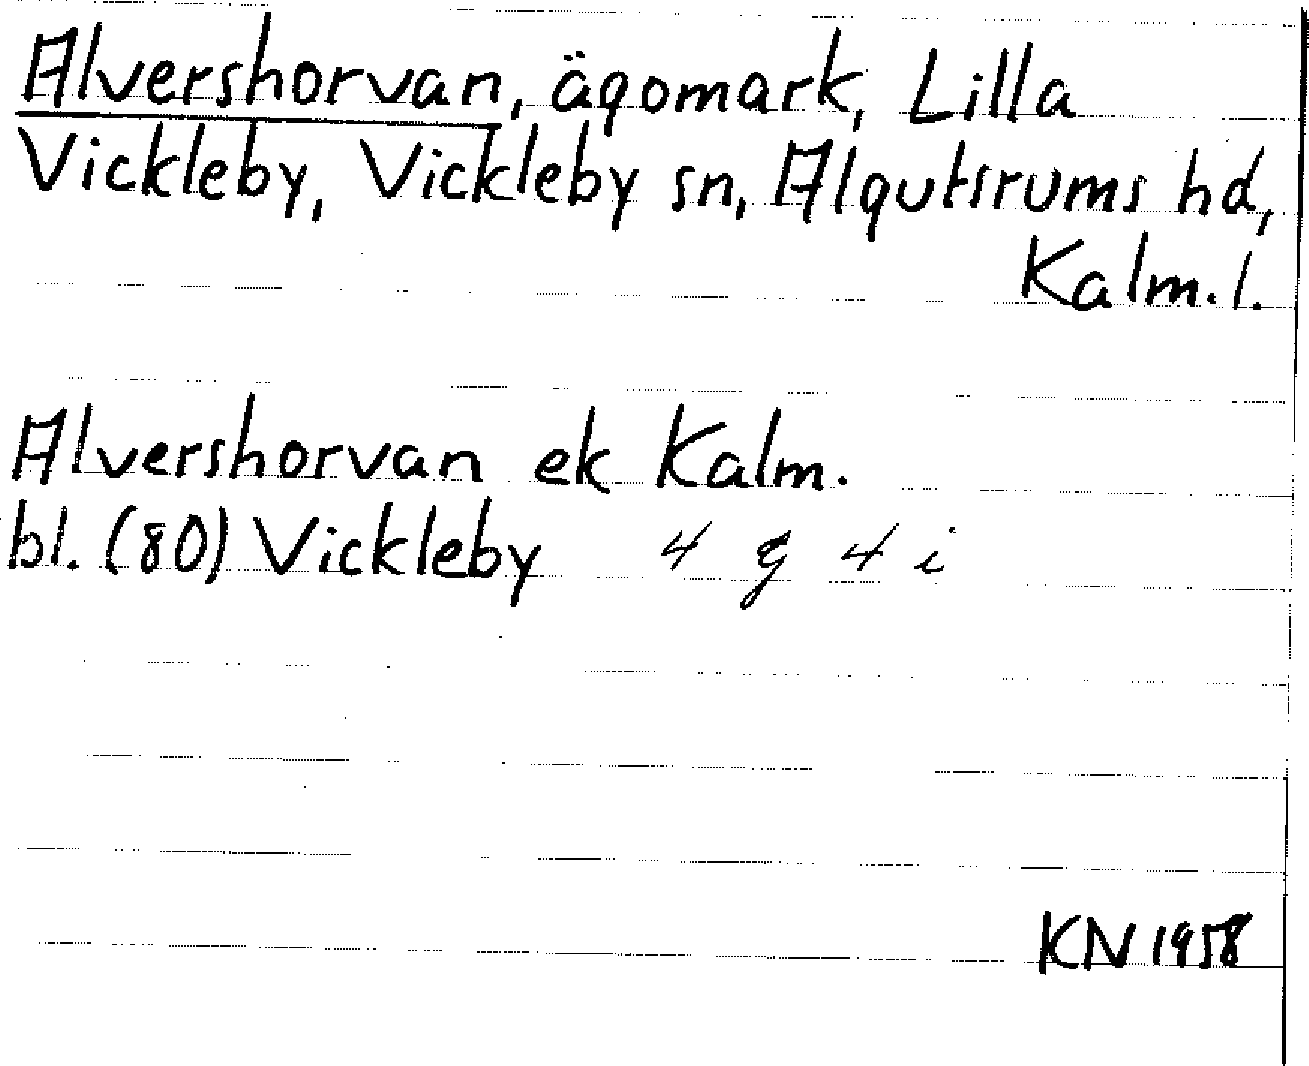 Alvershorvan, ägomark, Lilla
Vickleby, Vickleby sn, Algutsrums hd,
Kalm. l.
Alvershorvan ek Kalm.
bl. (80) Vickleby 4 g 4 i
KN 1958